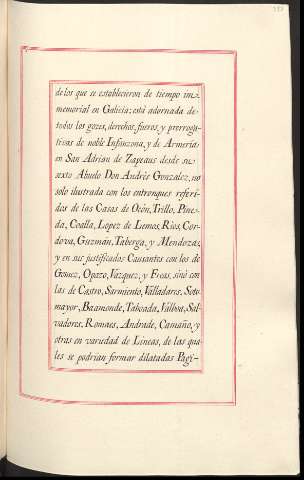 de los que se establecieron de tiempo in-
memorial en Galicia; está adornada de
todos los gozes, derechos, fueros, y prerroga-
tivas de noble Infanzona, y de Armeria
en San Adrian de Zapeaus desde su
sexto Abuelo Don Andrés Gonzalez, no
solo ilustrada con los entronques referi-
dos de las Casas de Ocón, Trillo, Pine-
da, Coalla, Lopez de Lemos, Rios, Cor-
dova, Guzmán, Taberga, y Mendoza;
y en sus justificados Causantes con los de
Gomez, Opazo, Vazquez, y Eyas, sinó con
las de Castro, Sarmiento, Valladares, Soto
mayor, Baamonde, Taboada, Villoa, Sal-
vadores, Romaes, Andrade, Camaño, y
otras en variedad de Lineas, de las qua-
les se podrian formar dilatadas Pagi-